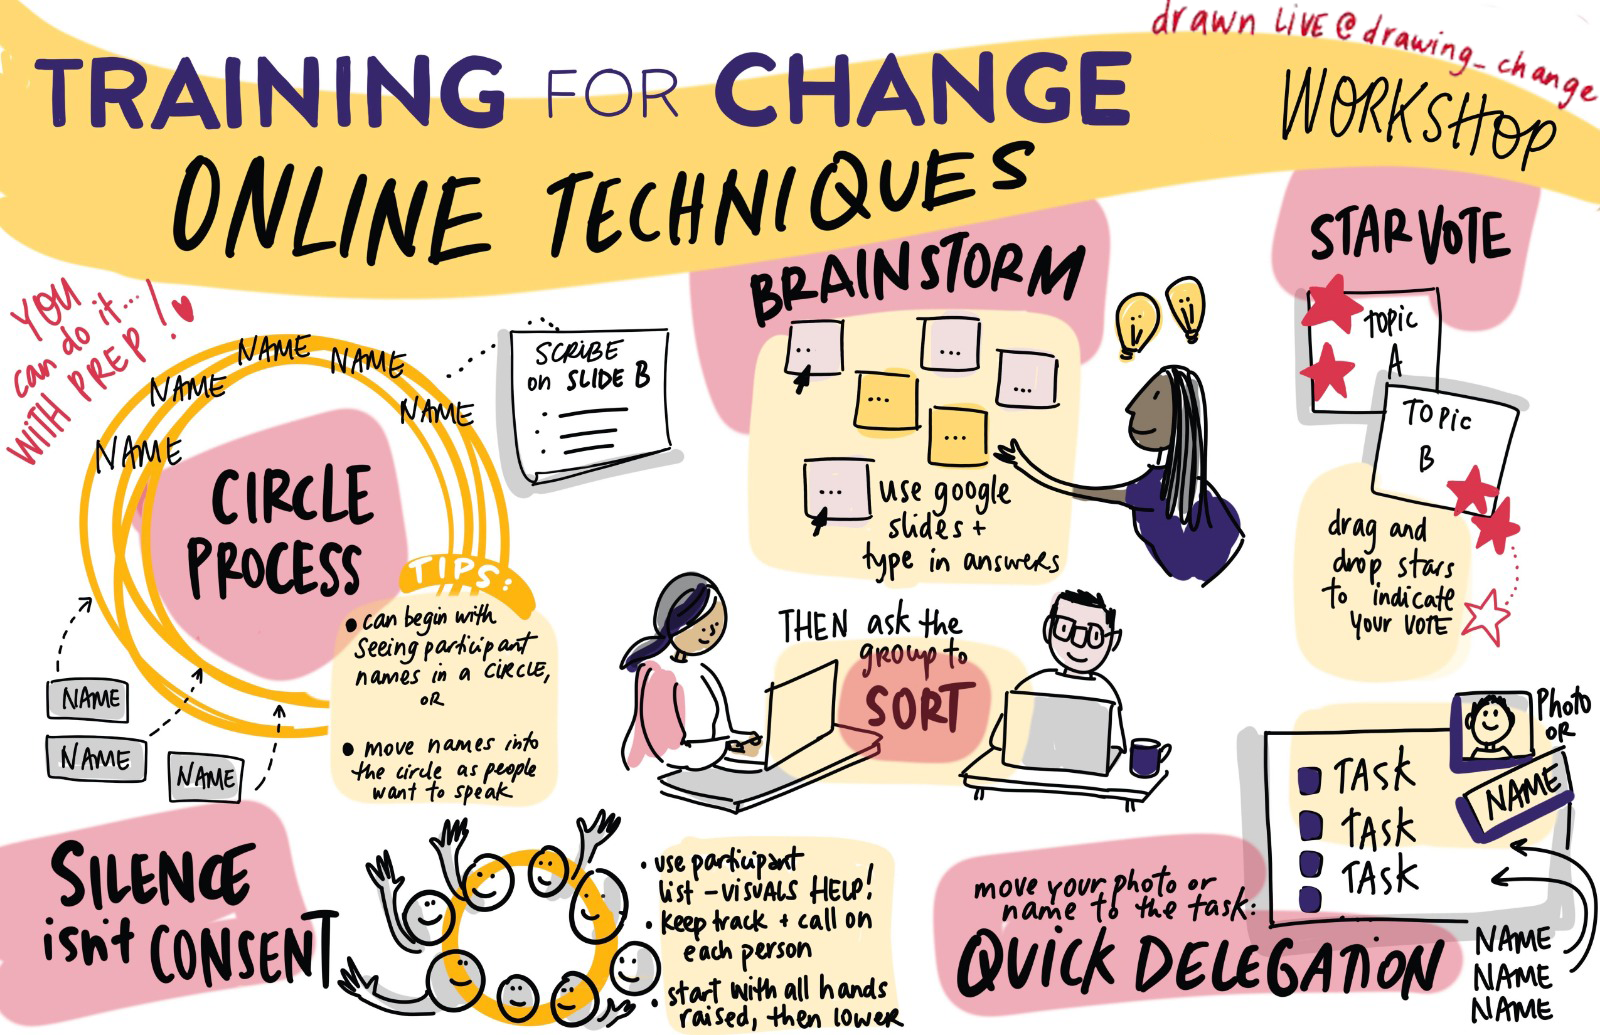 drawn LIVE @drawing_change
TRAINING FOR CHANGE
ONLINE TECHNIQUES
WORKSHOP
YOU
can do it...
WITH PREP!
NAME
NAME
NAME
NAME
NAME
CIRCLE
PROCESS
NAME
NAME
NAME
SCRIBE
on SLIDE B
TIPS:
• can begin with
seeing participant
names in a CIRCLE,
OR
• move names into
the circle as people
want to speak
BRAINSTORM
...
...
...
...
...
...
use google
slides +
type in answers
THEN ask the
group to
SORT
STAR VOTE
TOPIC
A
TOPIC
B
drag and
drop stars
to indicate
your VOTE
SILENCE
isn't CONSENT
• use participant
list - VISUALS HELP!
• keep track + call on
each person
• start with all hands
raised, then lower
move your photo or
name to the task:
QUICK DELEGATION
TASK
TASK
TASK
Photo
OR
NAME
NAME
NAME
NAME